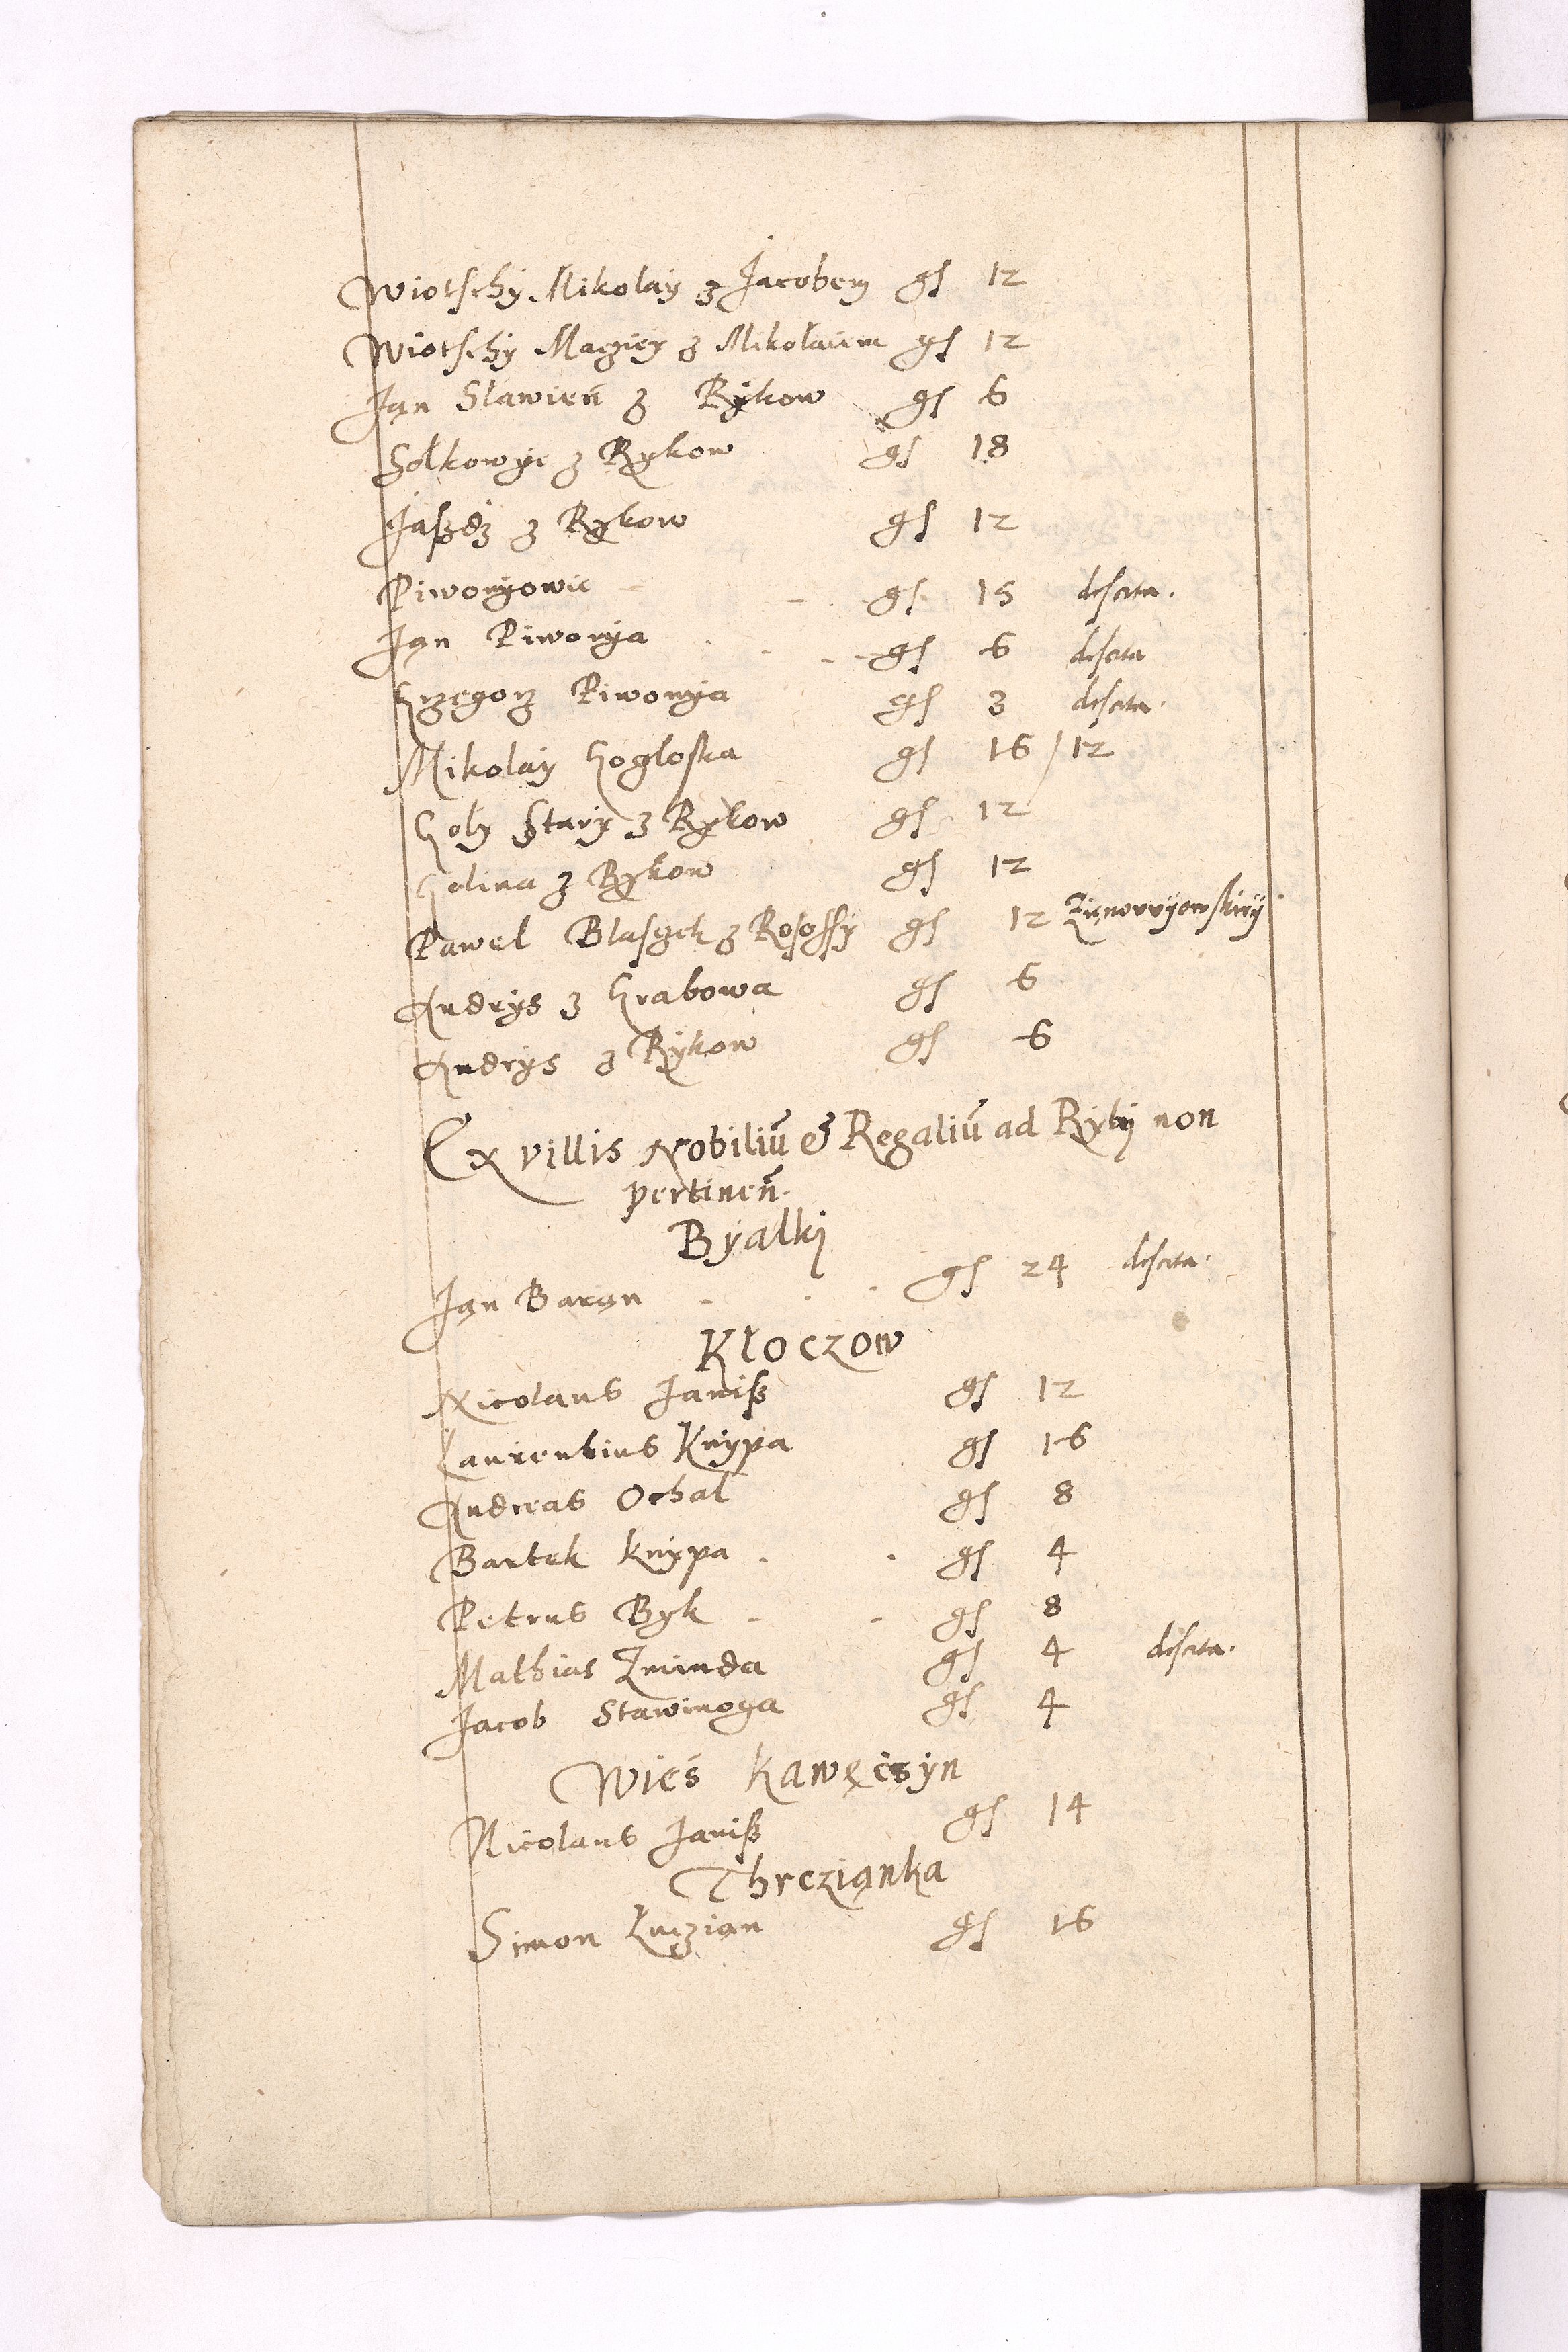 Wiotschy Mikolay z Jacobem gs 12
Wiotschy Maciey z Mikolaiem gs 12
Jan Sławien z Rykow gs 6
Sołkowye z Rykow gs 18
z Rykow gs 12
Piwonyowie gs 15 deserta.
Jan Piwonya gs 6 deserta
Grzegorz Piwonya gs 3 deserta.
Mikolay Gogloska gs 16 / 12
Goły Stary z Rykow gs 12
Golina z Rykow gs 12
Pawel Blaszek z gs 12
Andrys z Grabowa gs 6
Andrys z Rykow gs 6
Ex villis Nobiliū & Regaliū ad Ryky non
pertinen̄.
Byalki
Jan Baran gs 24 deserta.
Kłoczow
Nicolaus Janisz gs 12
Laurentius Knypa gs 16
Andreas Ochał gs 8
Bartek Knypa gs 4
Petrus Byk gs 8
Mathias Zminda gs 4 deserta.
Jacob Stawinoga gs 4
Wieś Kawęcsyn
Nicolaus Janisz gs 14
Threzianka
Simon Łuczian gs 16